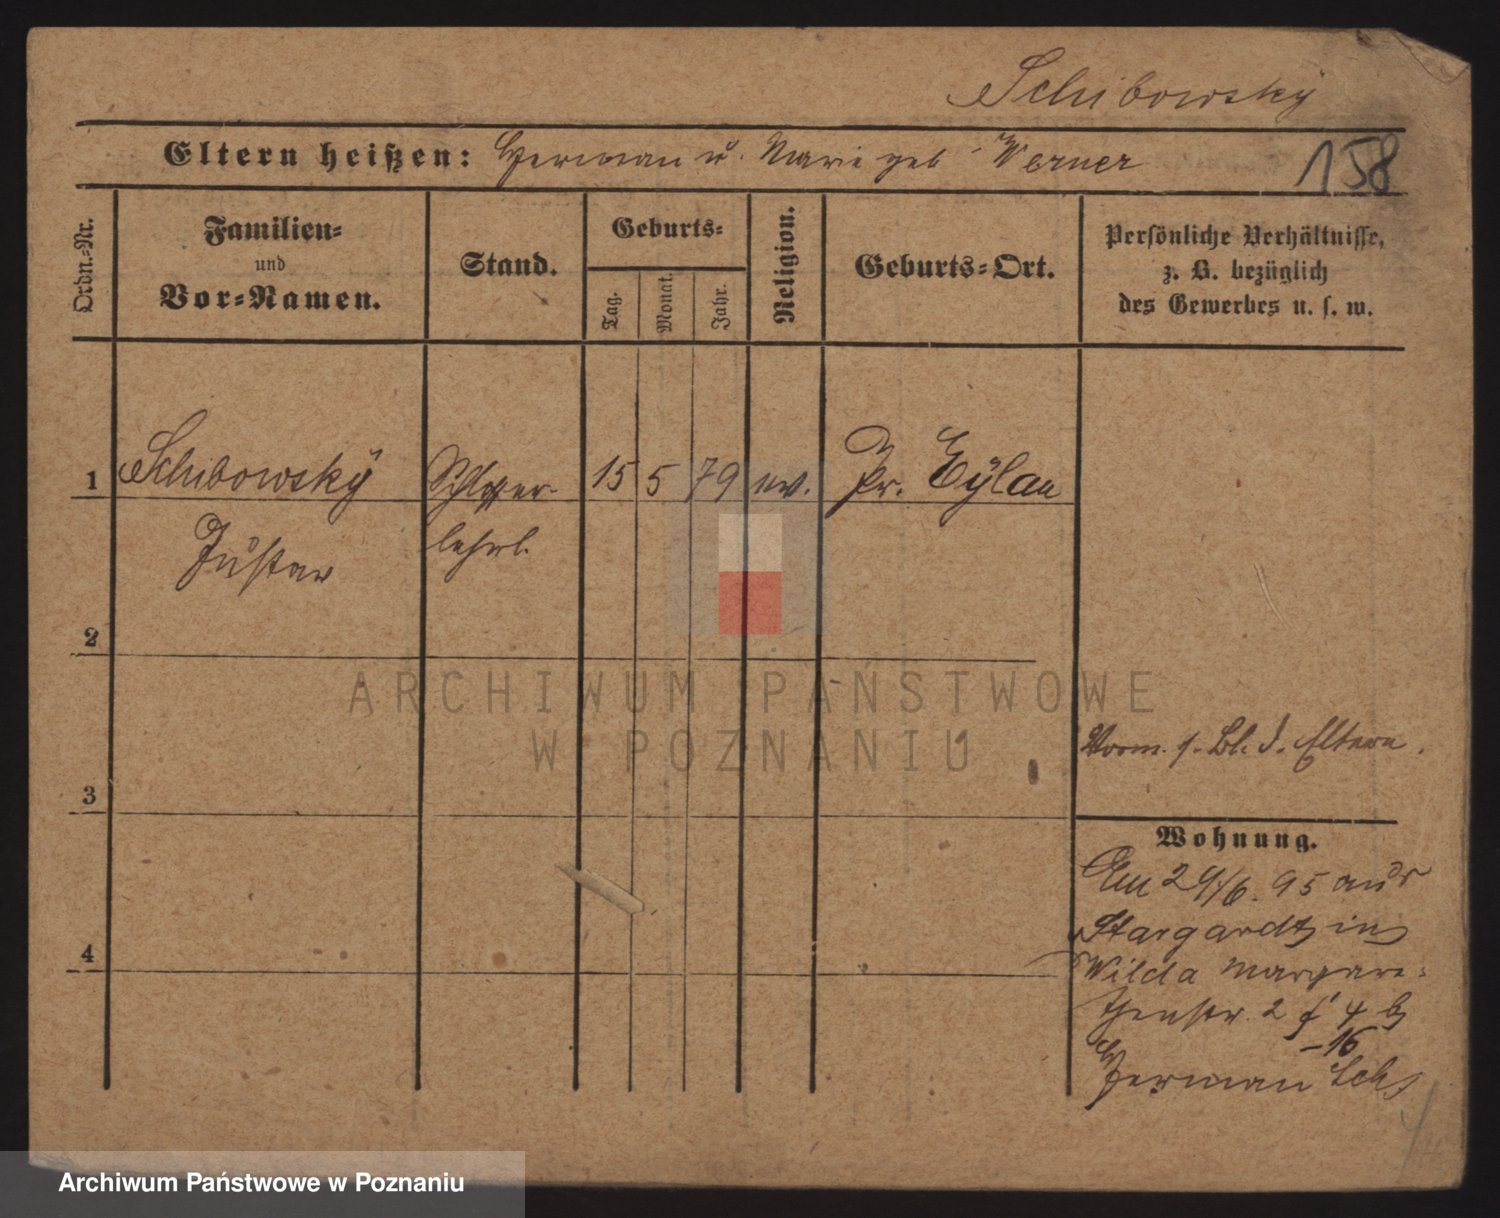 Schibowsky
Eltern heißen: Herman u. Marie geb. Werner
158
Ordn.-Nr.
Familien-
und
Vor-Namen.
Stand.
Geburts-
Tag.
Monat.
Jahr.
Religion.
Geburts-Ort.
Persönliche Verhältnisse,
z. B. bezüglich
des Gewerbes u. s. w.
1 Schibowsky Schlosser- 15 5 79 ev. Pr. Eylau
Gustav lehrl.
2
3
4
Vorm. s. Bl. d. Eltern.
Wohnung.
Am 29/6. 95 aus
Stargardt in
Wilda Margare-
thenstr. 2 4 b
-16
Herman Sch
ARCHIWUM PAŃSTWOWE
W POZNANIU
Archiwum Państwowe w Poznaniu